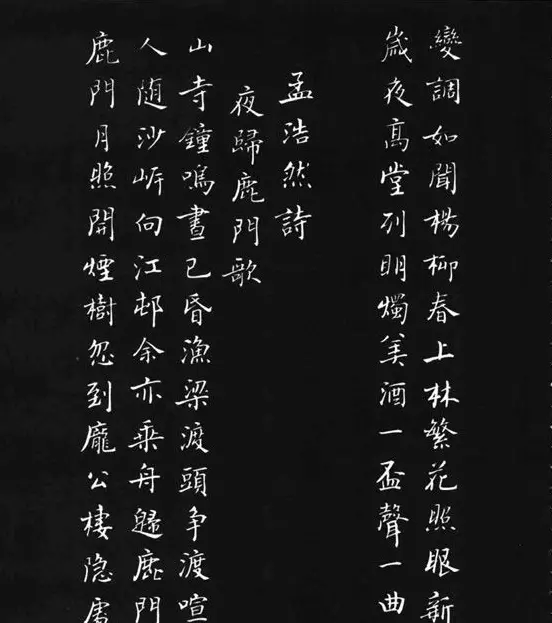 變調如聞楊柳春上林繁花照眼新
歲夜高堂列明燭美酒一盃聲一曲
孟浩然詩
夜歸鹿門歌
山寺鐘鳴晝已昏漁梁渡頭争渡喧
人隨沙岍向江邨余亦乘舟歸鹿門
鹿門月照開煙樹忽到龐公棲隐處